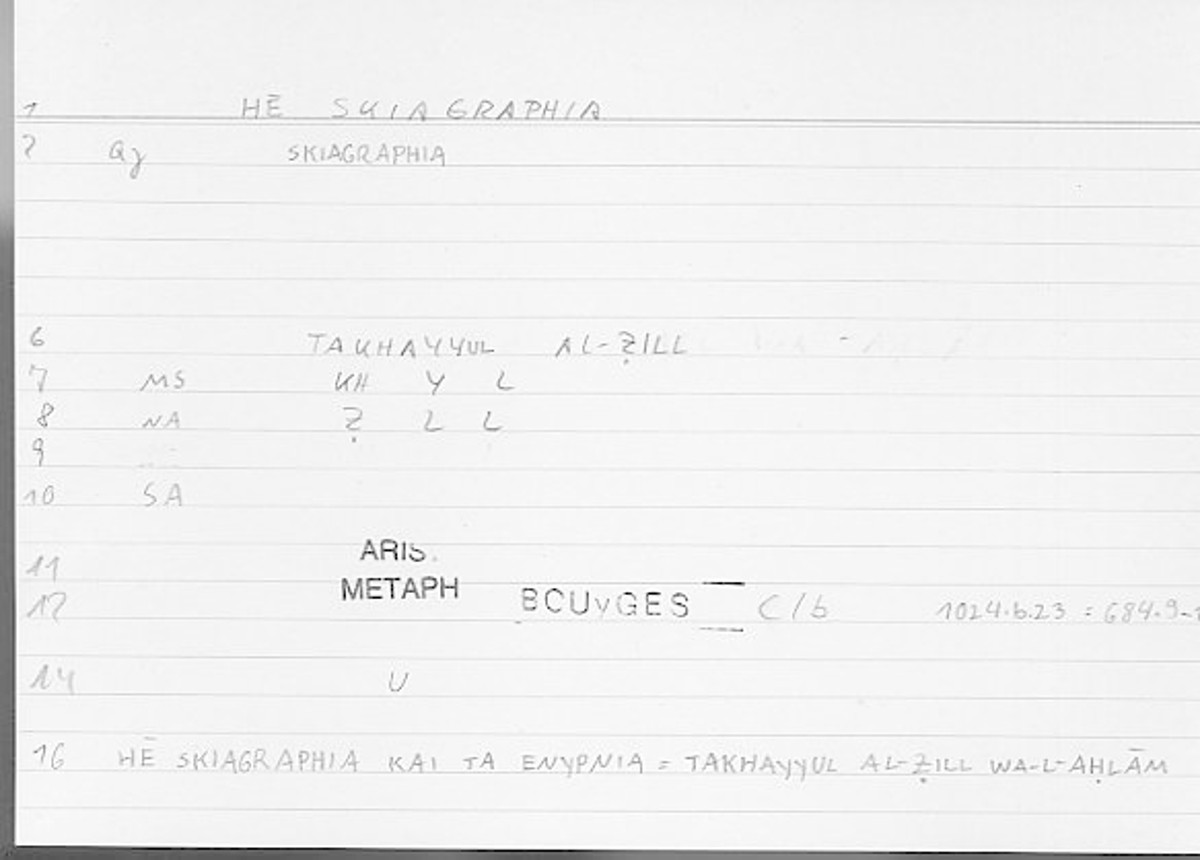 1 HĒ SKIAGRAPHIA
2 SKIAGRAPHIA
6 TAKHAYYUL AL-ẒILL
7 MS KH Y L
8 NA Ẓ L L
9
10 SA
ARIS.
11
METAPH
12 BCUvGES C/b 1024.b.23 = 684.9-1
14 U
16 HĒ SKIAGRAPHIA KAI TA ENYPNIA = TAKHAYYUL AL-ẒILL WA-L-AḤLĀM